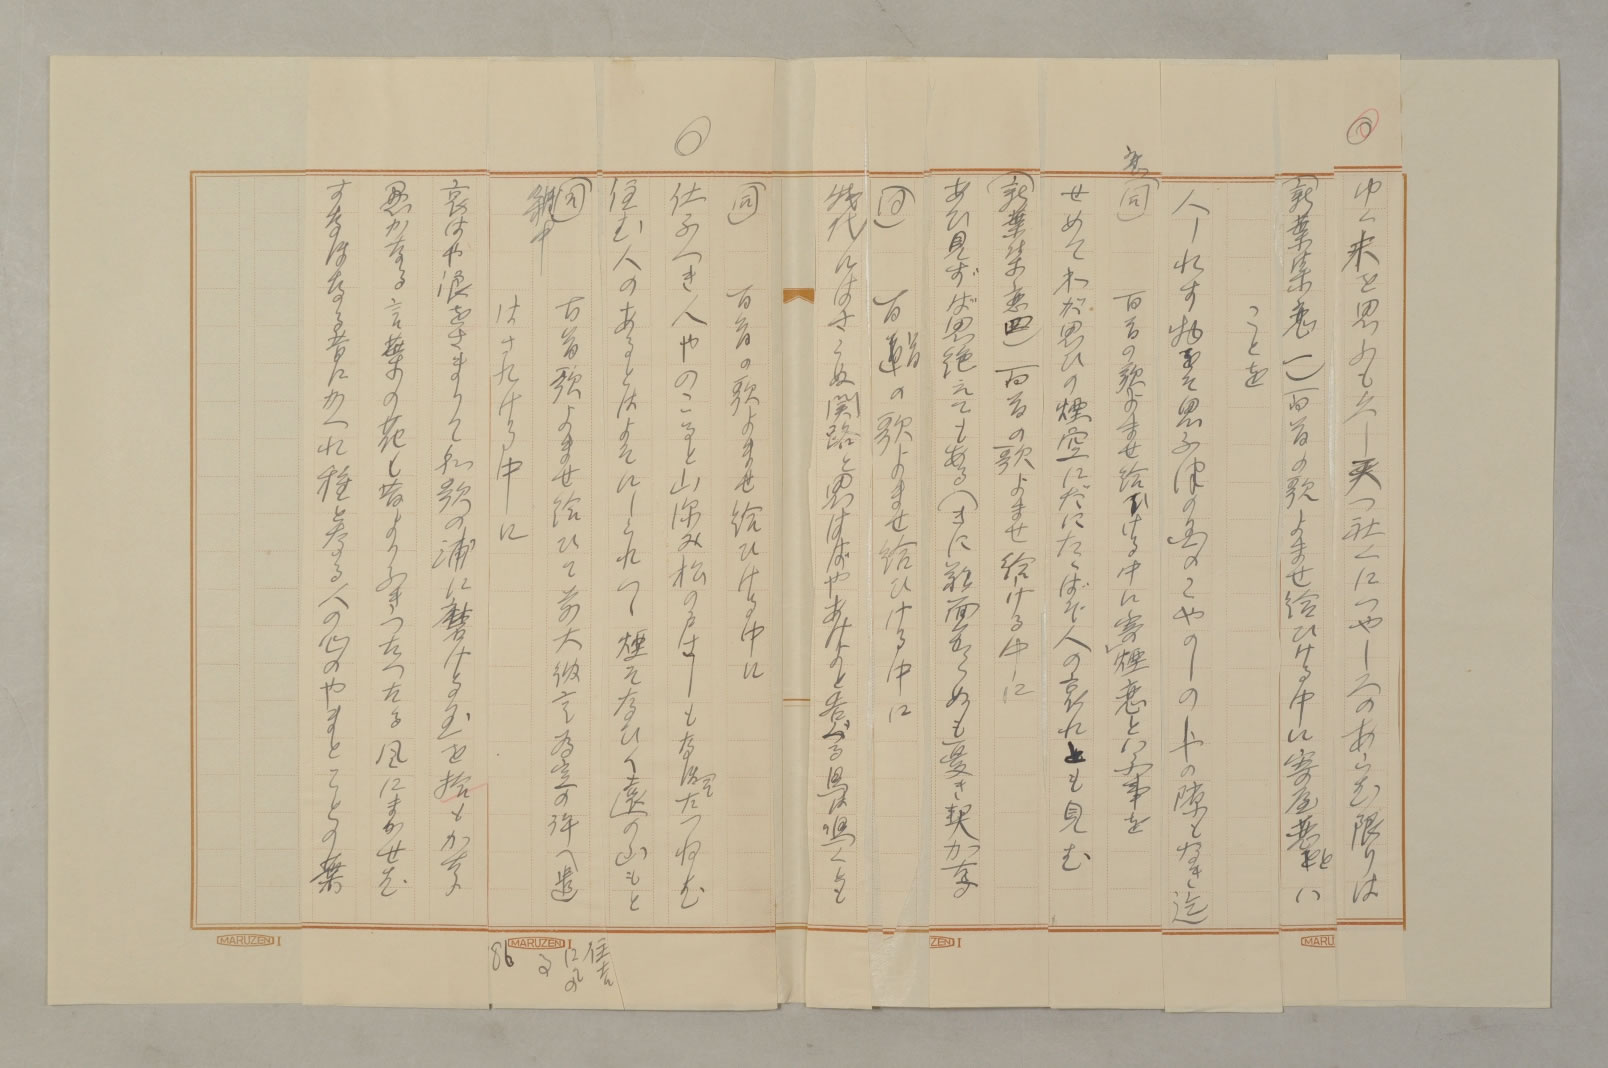 ゆく末を思ふも久し天つ社くにつやしろのあらむ限りは
(新葉集恋一) 百首の歌よませ給ひける中に寄屋恋とい
ことを
人しれず物をぞ思ふ津の国のこやのしのやの隙もなき迄
恋(同) 百首の歌よませ給ひける中に寄煙恋といふ事を
せめてわが思ひの煙空にだにたゝばぞ人の哀れとも見む
(新葉集恋四) 百首の歌よませ給ける中に
あひ見ずば思絶えてもあるべきに難面からぬも憂き契かな
(同) 百首の歌よませ給ひける中に
幾代んはさゝぬ関路と思はばやあけよと告ぐる鳥は鳴くとも
(同) 百首の歌よませ給ひける中に
仕ふべき人やのこると山深み松の
住む人のあるとはよそにしられつゝ煙ぞなびく遠の山もと
(同)雑中 百首歌よませ給ひて前大納言為定の許へ遣
はされける中に
哀はや浪をさまりて和歌の浦に磨ける玉を拾もかな
愚かなる言葉の花も昔よりふきつたへたる風にまかせむ
すなほなる昔にかへれ種となる人の心のやまとことの葉
住吉
86
MARUZEN I
MARUZEN I
ZEN I
MARU